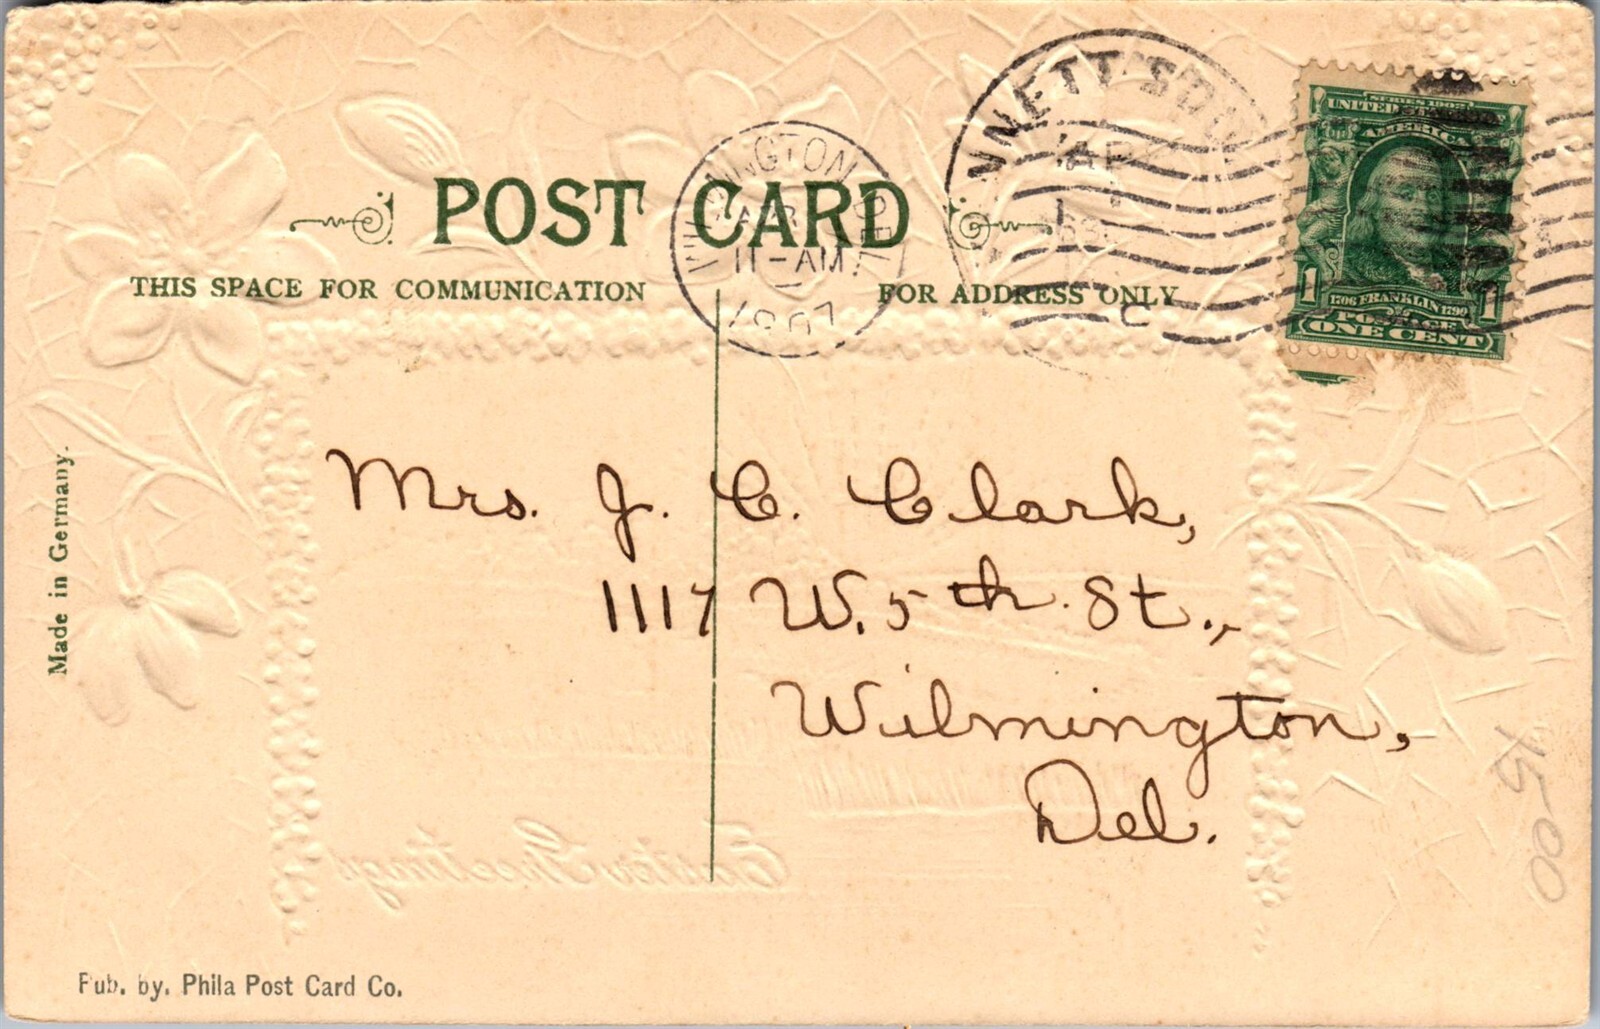 POST CARD
THIS SPACE FOR COMMUNICATION
FOR ADDRESS ONLY
WILMINGTON DEL.
APR
11-AM
1907
NNETT SQU
AP
C
SERIES 1902
UNITED STATES OF
AMERICA
1 1
1706 FRANKLIN 1790
POSTAGE
ONE CENT
Mrs. J. C. Clark,
1117 W. 5th. St.,
Wilmington,
Del.
Made in Germany.
Easter Greetings
15-00
Pub. by. Phila Post Card Co.